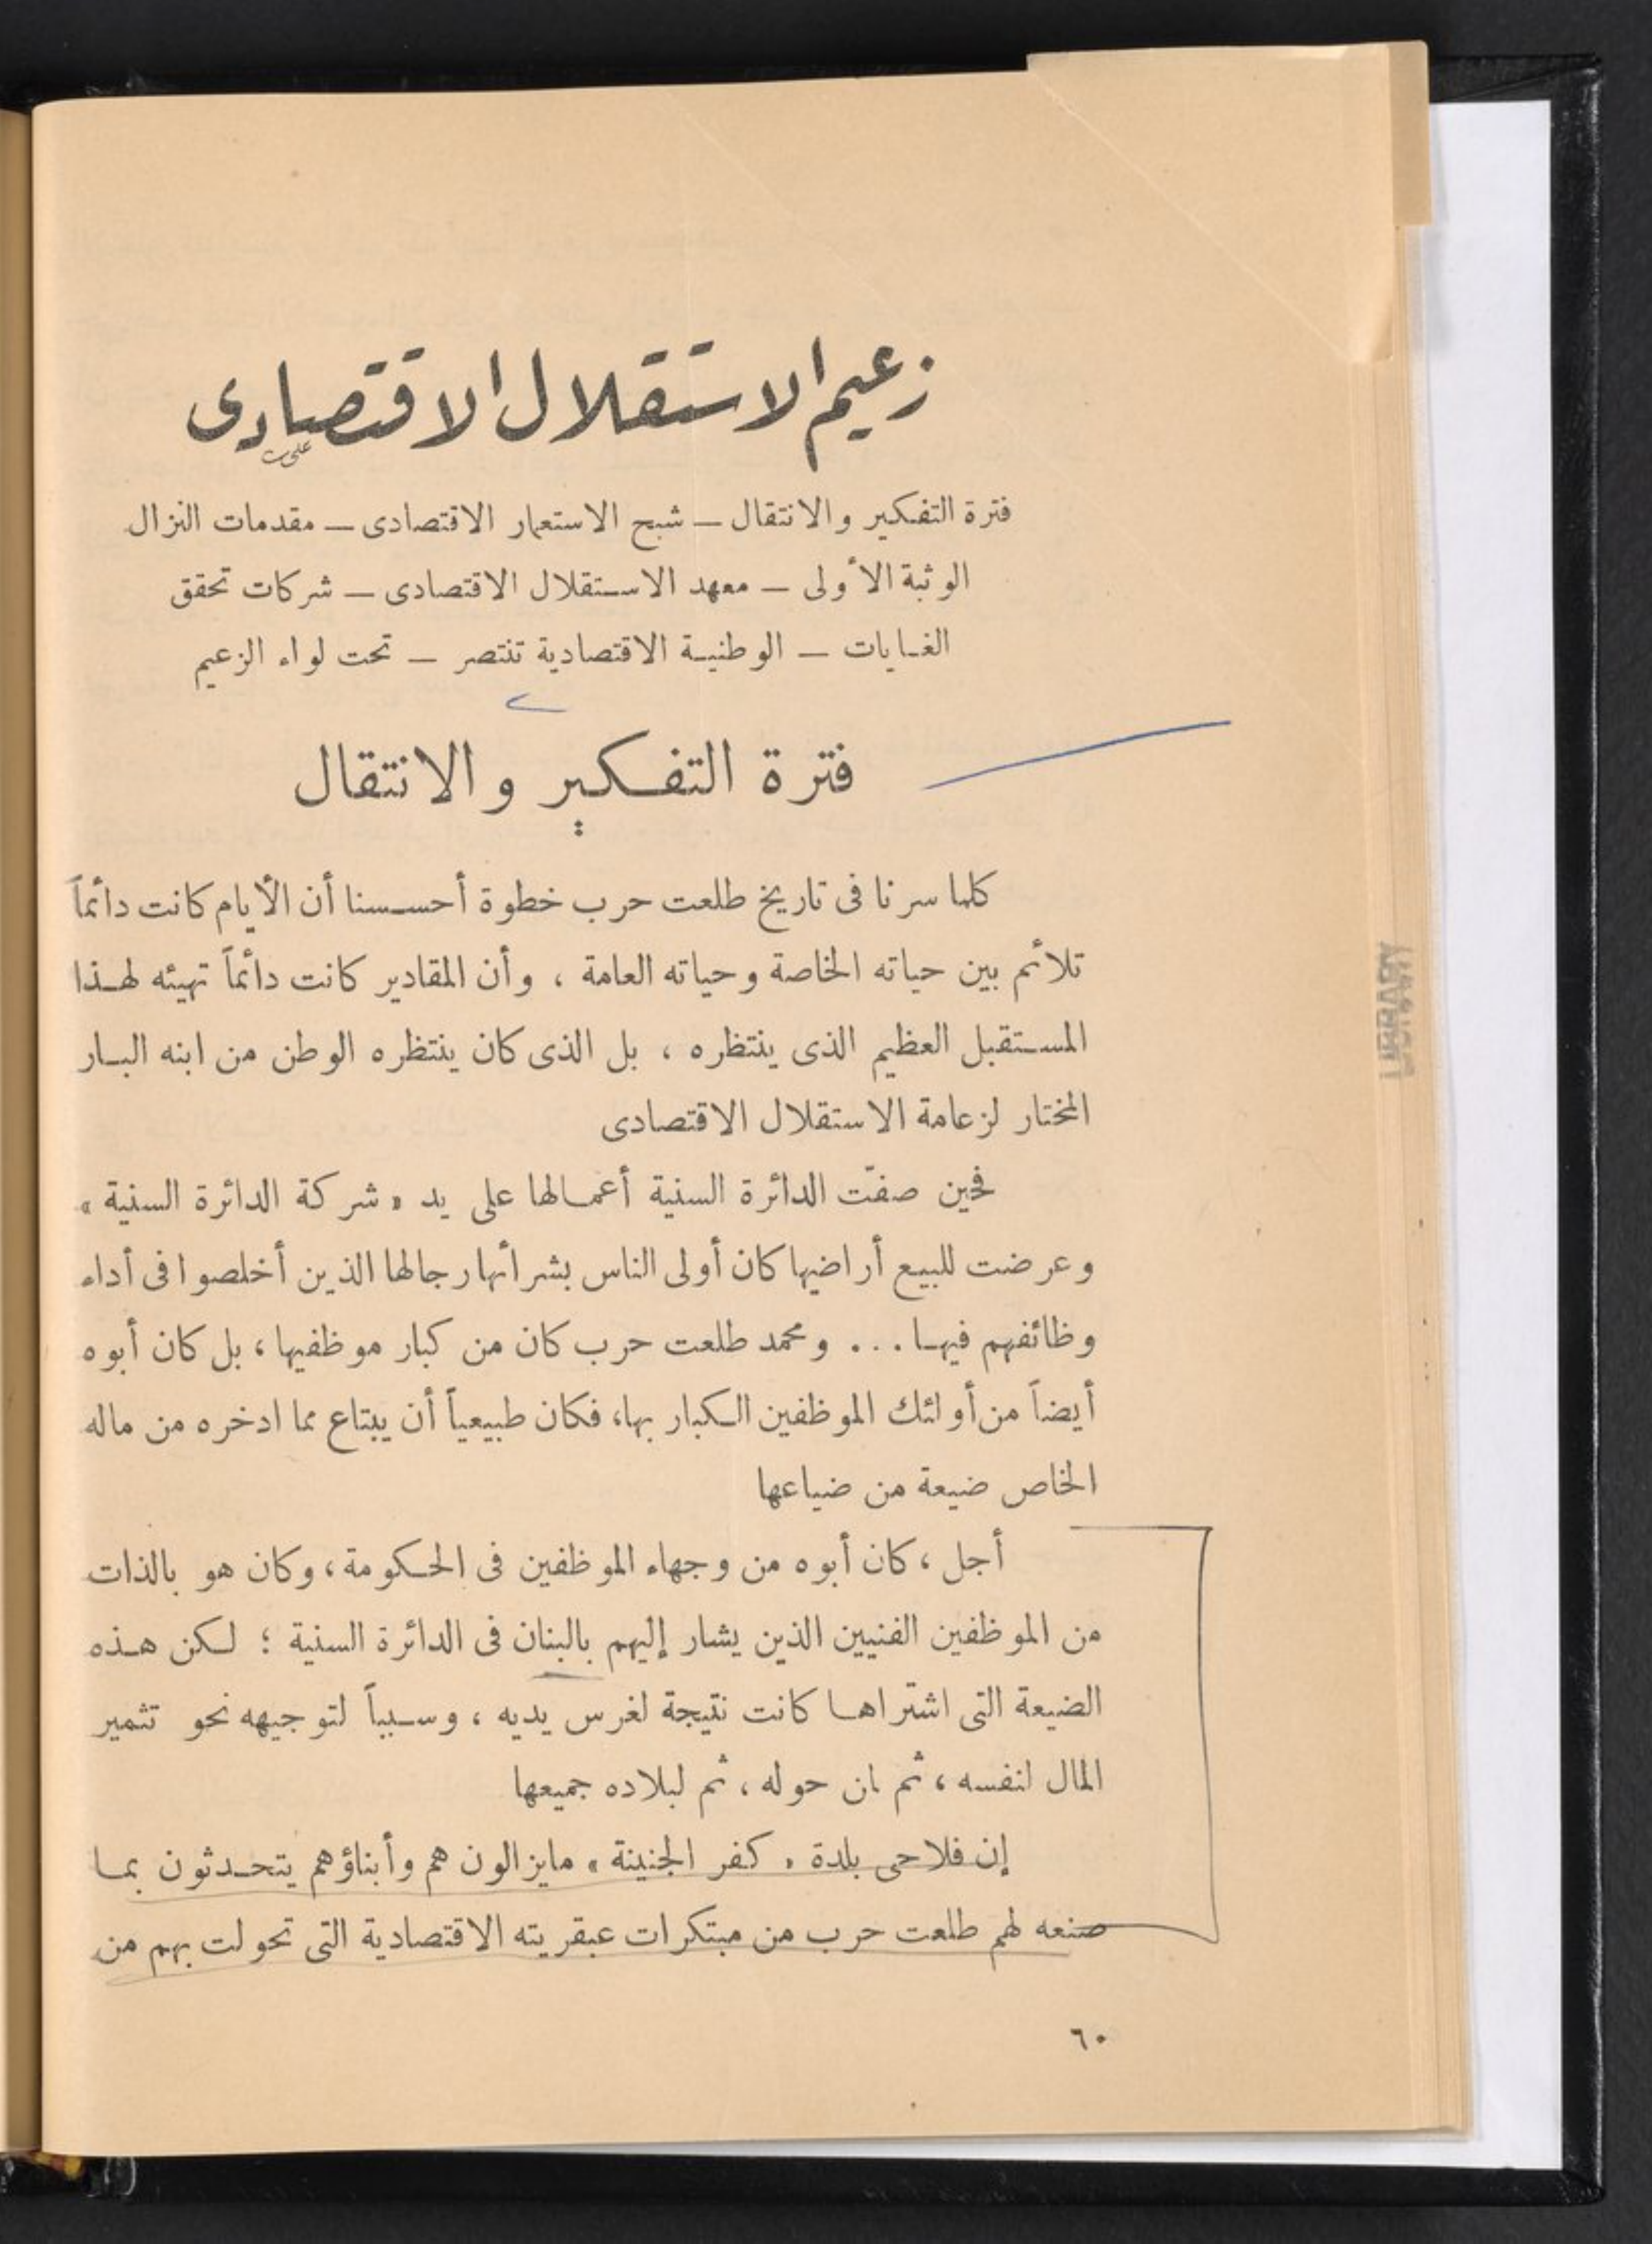 زعيم الاستقلال الاقتصادى
فترة التفكير والانتقال — شبح الاستعمار الاقتصادى — مقدمات النزال
الوثبة الأولى — معهد الاستقلال الاقتصادى — شركات تحقق
الغايات — الوطنية الاقتصادية تنتصر — تحت لواء الزعيم
فترة التفكير والانتقال
كلما سرنا فى تاريخ طلعت حرب خطوة أحسسنا أن الأيام كانت دائماً
تلائم بين حياته الخاصة وحياته العامة ، وأن المقادير كانت دائماً تهيئه لهذا
المستقبل العظيم الذى ينتظره ، بل الذى كان ينتظره الوطن من ابنه البار
المختار لزعامة الاستقلال الاقتصادى
فحين صفّت الدائرة السنية أعمالها على يد « شركة الدائرة السنية »
وعرضت للبيع أراضيها كان أولى الناس بشرائها رجالها الذين أخلصوا فى أداء
وظائفهم فيها ... ومحمد طلعت حرب كان من كبار موظفيها ، بل كان أبوه
أيضاً من أولئك الموظفين الكبار بها، فكان طبيعياً أن يبتاع مما ادخره من ماله
الخاص ضيعة من ضياعها
أجل ، كان أبوه من وجهاء الموظفين فى الحكومة ، وكان هو بالذات
من الموظفين الفنيين الذين يشار إليهم بالبنان فى الدائرة السنية ؛ لكن هذه
الضيعة التى اشتراها كانت نتيجة لغرس يديه ، وسبباً لتوجيهه نحو تثمير
المال لنفسه ، ثم لمن حوله ، ثم لبلاده جميعها
إن فلاحى بلدة « كفر الجنينة » مايزالون هم وأبناؤهم يتحدثون بما
صنعه لهم طلعت حرب من مبتكرات عبقريته الاقتصادية التى تحولت بهم من
٦٠
LIBRARY